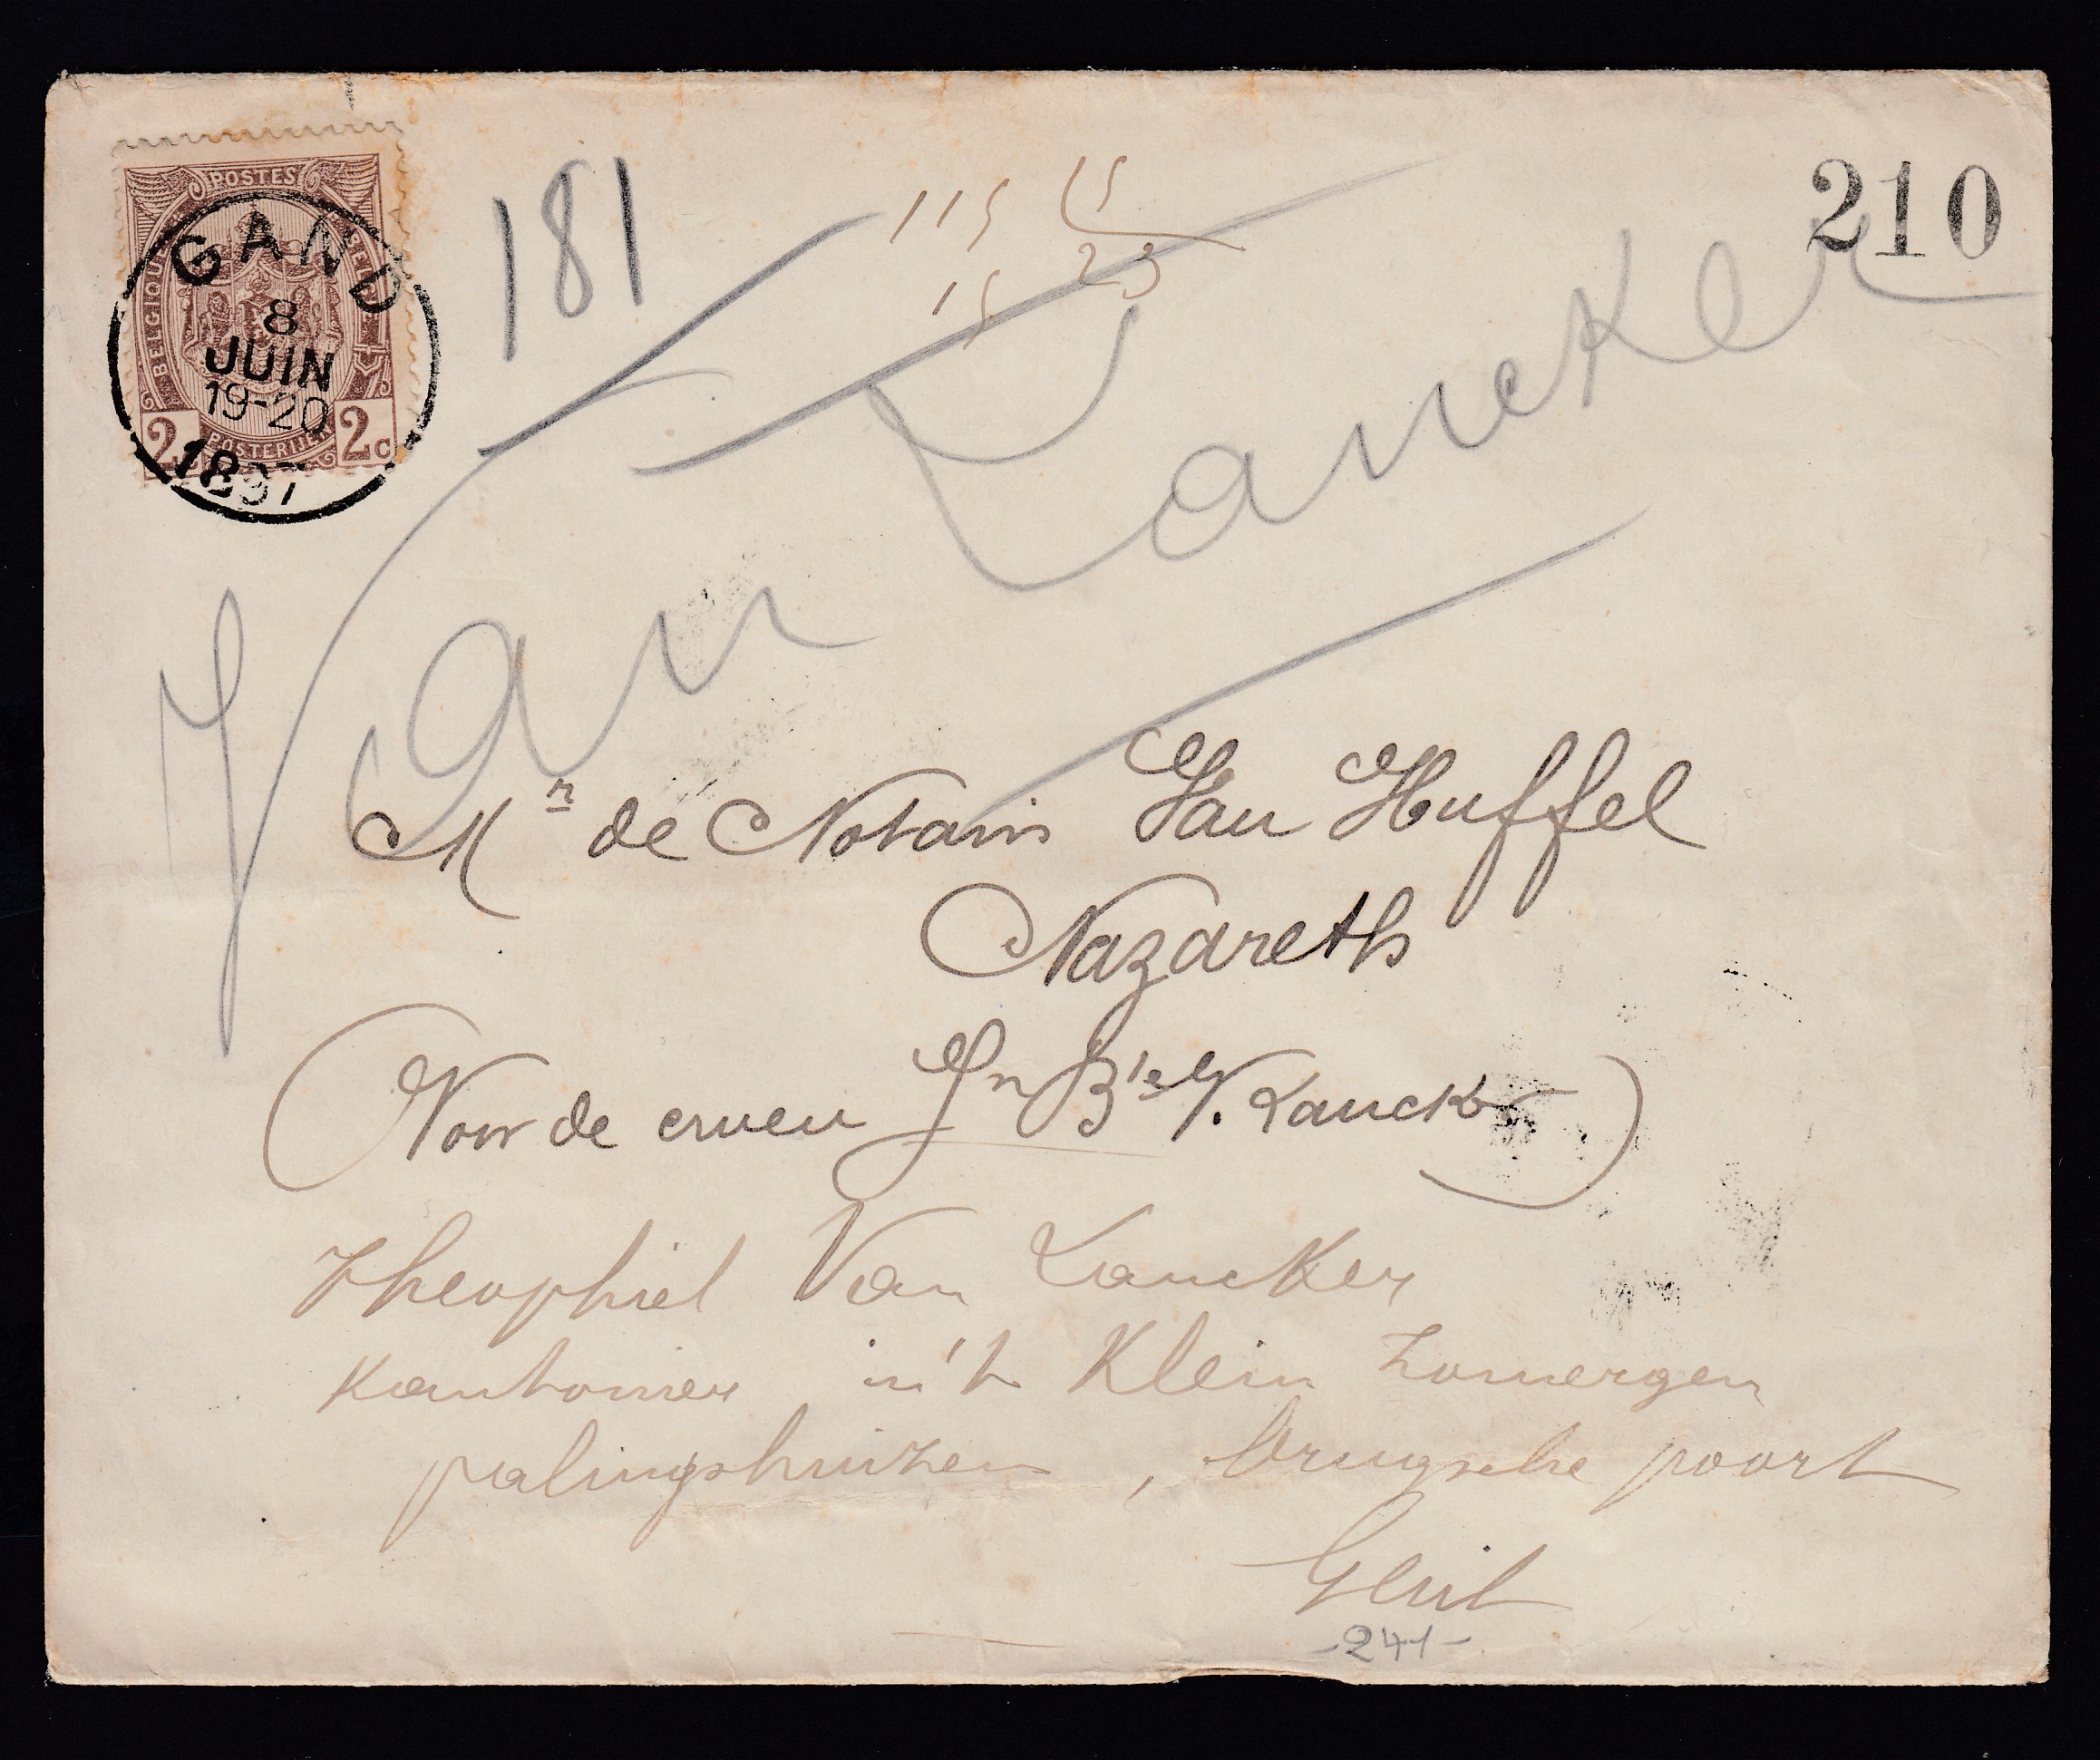 POSTES
BELGIQUE
BELGIE
POSTERIJEN
2c 2c
GAND
8
JUIN
19-20
1897
181
115 15
15 23
210
Van Lancker
Mr de Notaris Van Huffel
Nazareth
(Voor de erven Jn Bte V. Lancker)
Theophiel Van Lancker
Kantonier in't Klein Zomergen
palingshuizen, brugsche poort
Gent
-241-